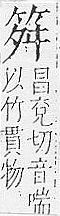 䇍
昌兗切音喘
以竹貫物